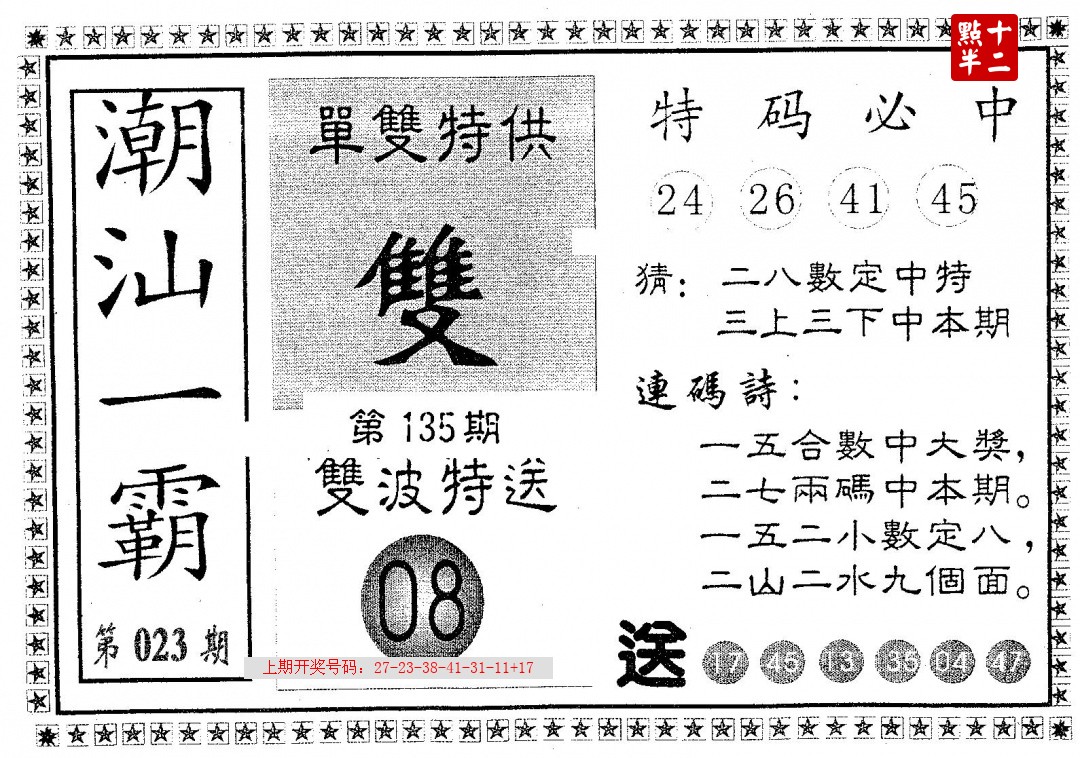 十二
點半
潮汕一霸
第023期
單雙特供
雙
第135期
雙波特送
08
上期开奖号码：27-23-38-41-31-11+17
特码必中
24 26 41 45
猜：二八數定中特
三上三下中本期
連碼詩：
一五合數中大獎，
二七兩碼中本期。
一五二小數定八，
二山二水九個面。
送 17 45 13 35 04 47